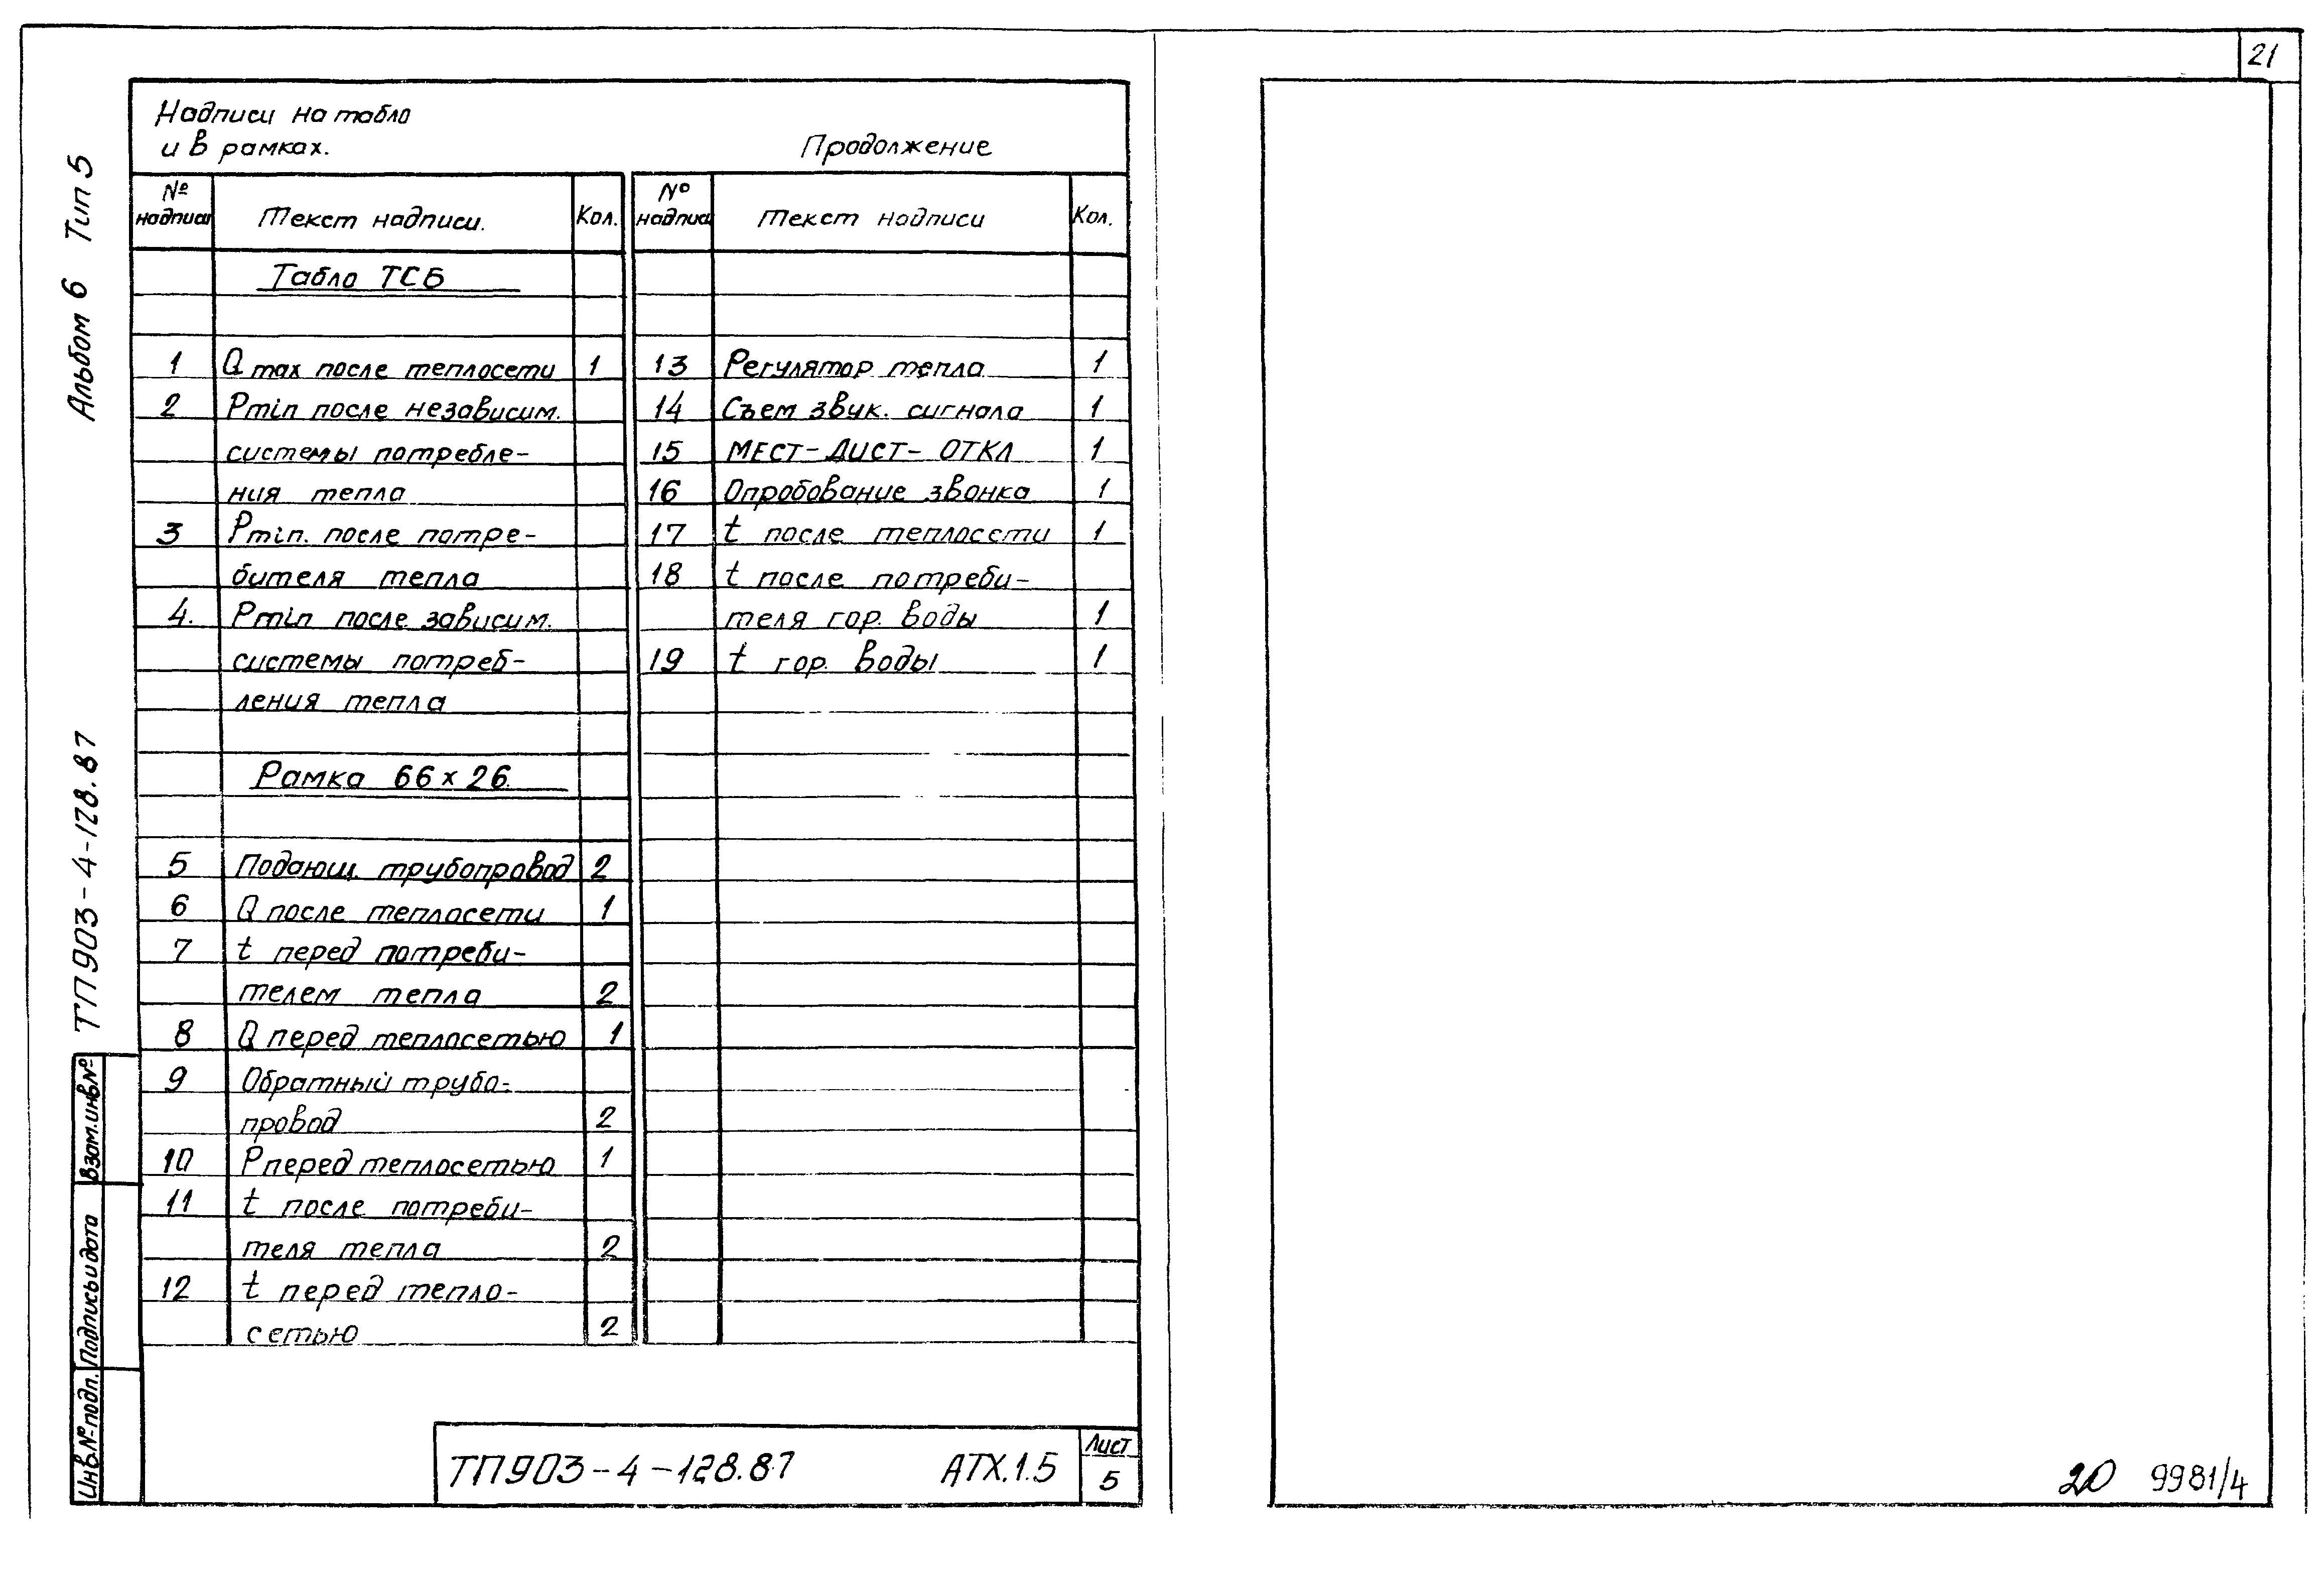 21
Альбом 6 Тип 5
ТП903-4-128.87
Взам.инв.№
Подпись и дата
Инв.№ подп.
Надписи на табло
и в рамках.
Продолжение
№ надписи Текст надписи. Кол.
Табло ТСБ
1 Q max после теплосети 1
2 Pmin после независим.
системы потребле-
ния тепла
3 Pmin. после потре-
бителя тепла
4. Pmin после зависим.
системы потреб-
ления тепла
Рамка 66х26.
5 Подающ. трубопровод 2
6 Q после теплосети 1
7 t перед потреби-
телем тепла 2
8 Q перед теплосетью 1
9 Обратный трубо-
провод 2
10 P перед теплосетью 1
11 t после потреби-
теля тепла 2
12 t перед тепло-
сетью 2
№ надписи Текст надписи Кол.
13 Регулятор тепла 1
14 Съем звук. сигнала 1
15 МЕСТ-ДИСТ-ОТКЛ 1
16 Опробование звонка 1
17 t после теплосети 1
18 t после потреби-
теля гор. воды 1
19 t гор. воды 1
ТП903-4-128.87 АТХ.1.5
Лист
5
20 9981/4